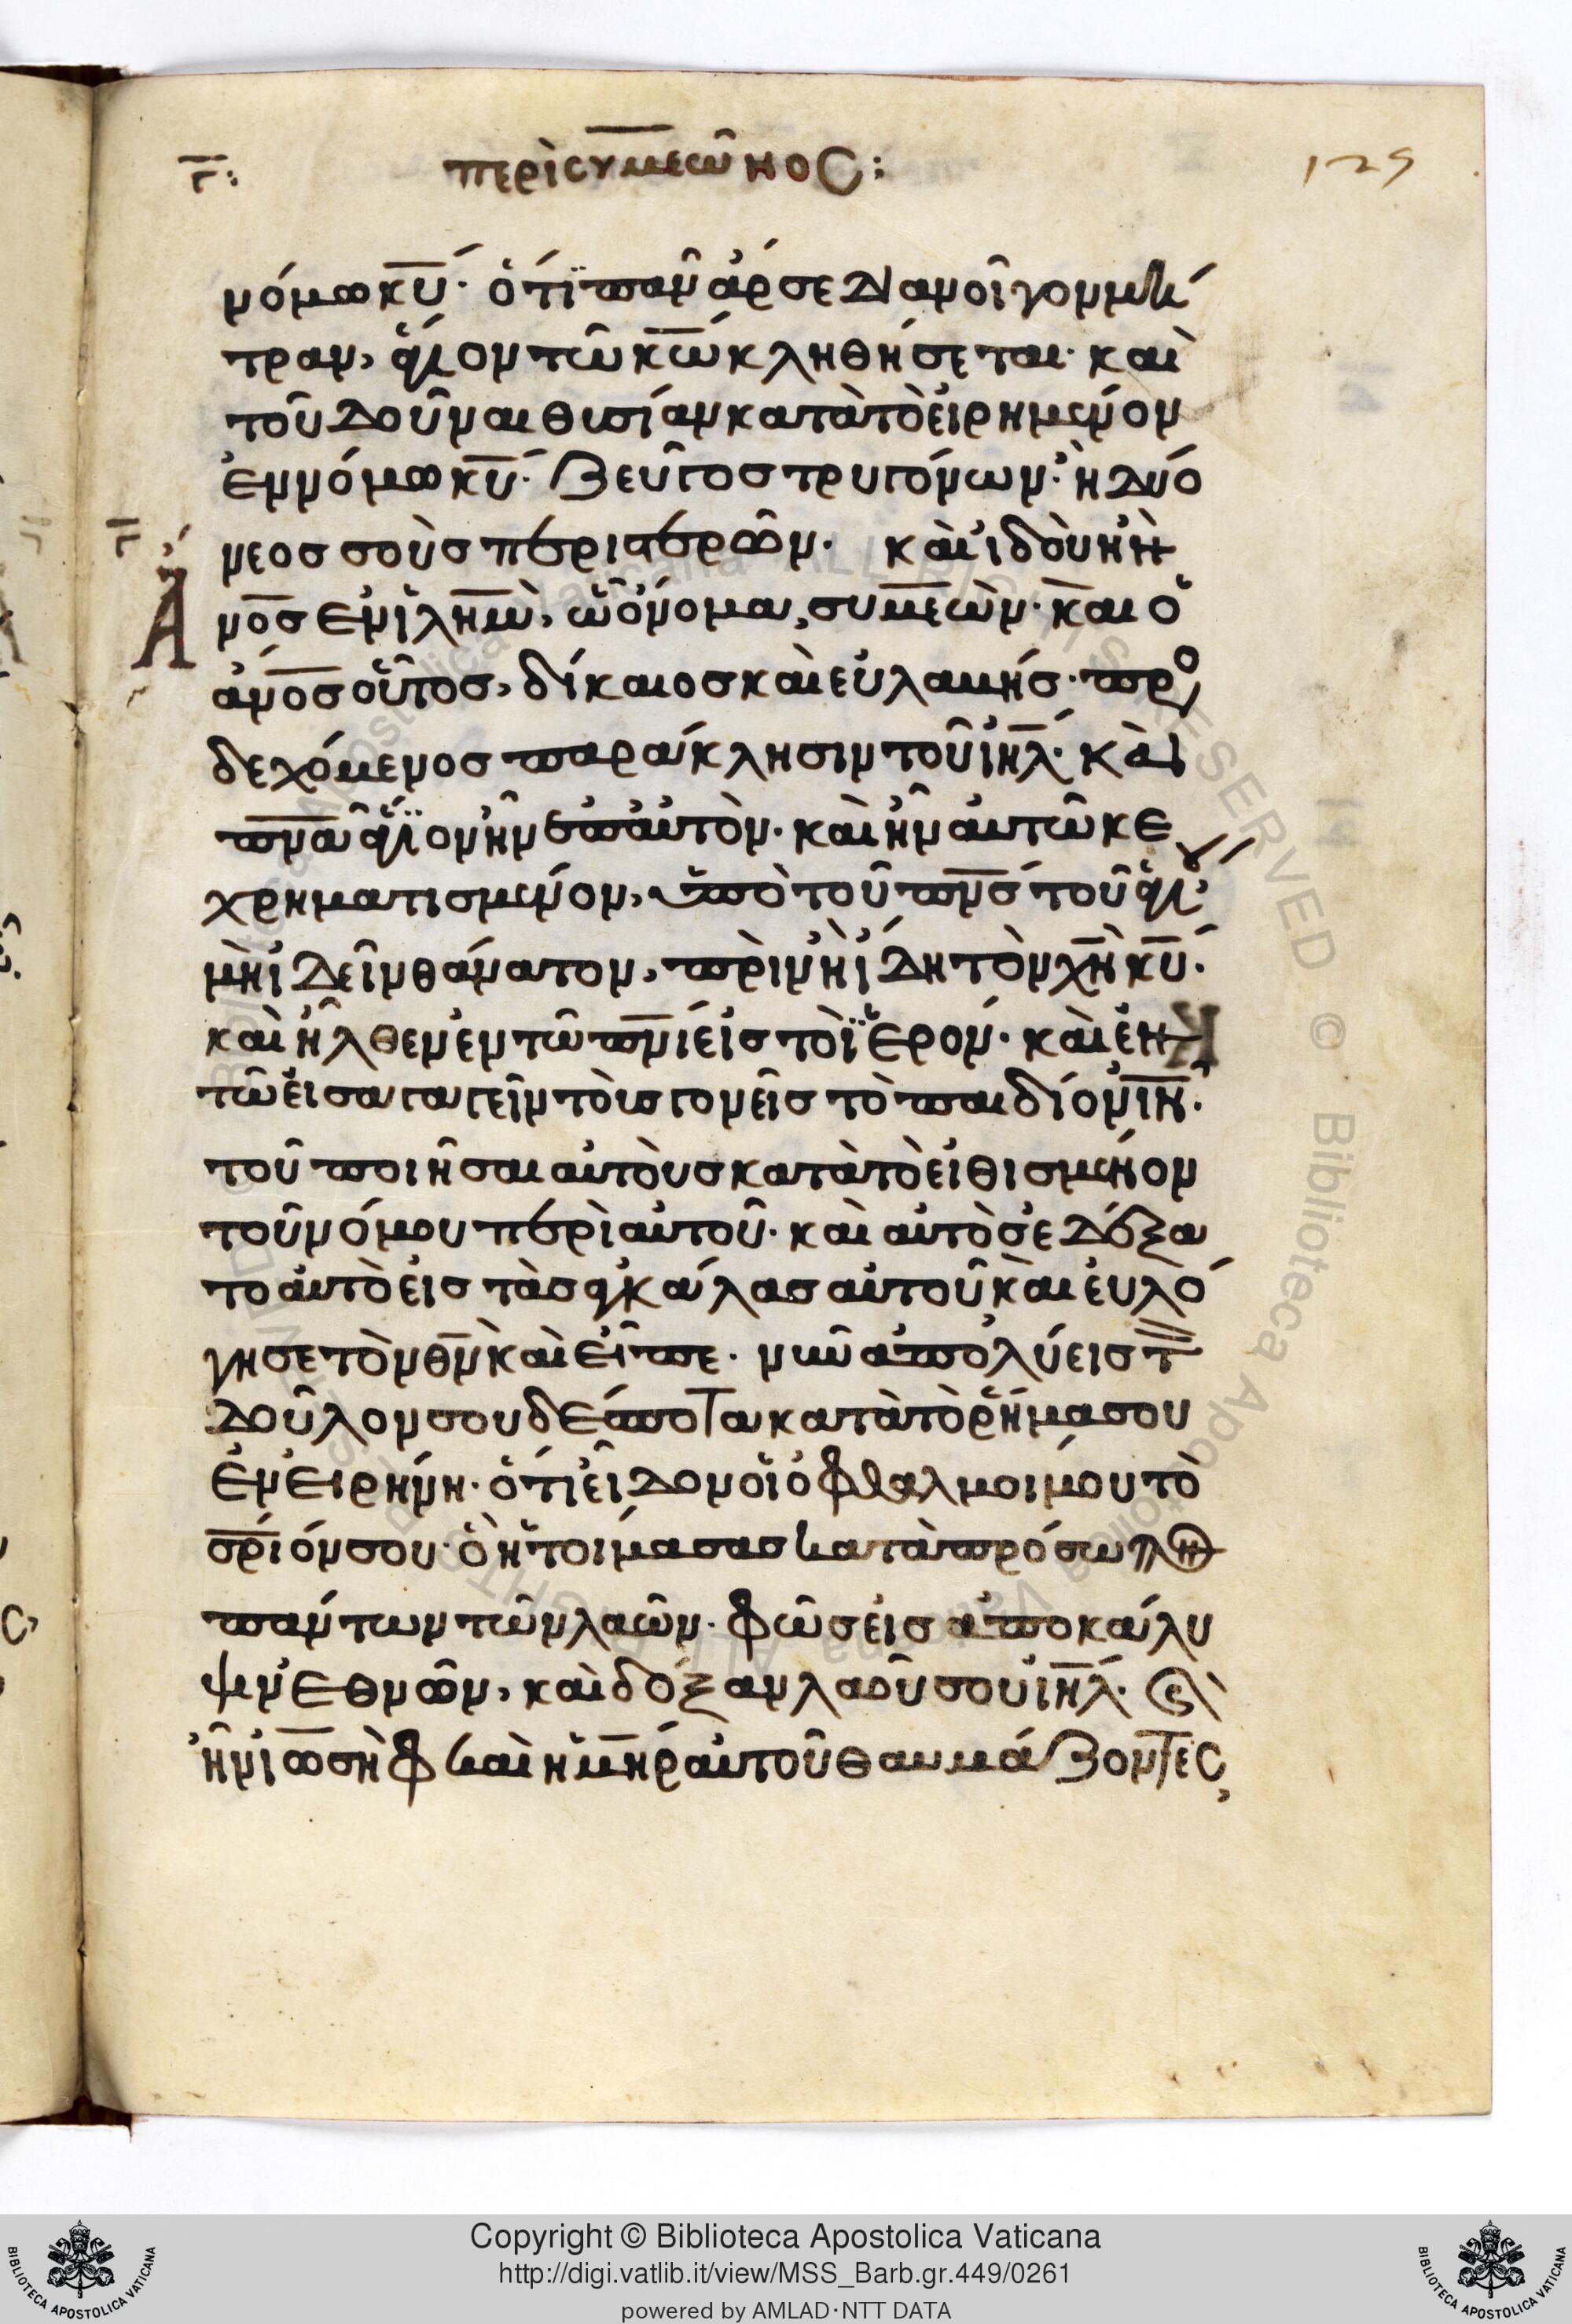 γ: περὶ συμεῶνος: 129
νόμω κ̅υ̅· ὅτι πᾶν ἄρσεν διανοῖγον μή
τραν, ἅγιον τῶ κ̅ω̅ κληθήσεται· καὶ
τοῦ δοῦναι θυσίαν κατὰ τὸ εἰρημένον
ἐν νόμω κ̅υ̅· ζεῦγος τρυγόνων· ἢ δύο
νεοσσοὺς περιστερῶν· καὶ ἰδοὺ ἦν
γ
α̅ν̅ο̅ς̅ ἐν ἰ̅λ̅η̅μ̅, ὧ ὄνομα, συμεών· καὶ ὁ
α̅ν̅ο̅ς̅ οὗτος, δίκαιος καὶ εὐλαβής· προσ
δεχόμενος παράκλησιν τοῦ ι̅η̅λ̅· καὶ
π̅ν̅α̅ ἅγιον ἦν ἐπ' αὐτόν· καὶ ἦν αὐτῶ κε
χρηματισμένον, ὑπὸ τοῦ π̅ν̅ς̅ τοῦ ἁγίου
μὴ ἰδεῖν θάνατον, πρὶν ἢ ἴδη τὸν χ̅ν̅ κ̅υ̅·
καὶ ἦλθεν ἐν τῶ π̅ν̅ι̅ εἰς τὸ ἱερόν· καὶ ἐν
τῶ εἰσαγαγεῖν τοὺς γονεῖς τὸ παιδίον ι̅ν̅·
τοῦ ποιῆσαι αὐτοὺς κατὰ τὸ εἰθισμένον
τοῦ νόμου περὶ αὐτοῦ· καὶ αὐτὸς ἐδέξα
το αὐτὸ εἰς τὰς ἀγκάλας αὐτοῦ καὶ εὐλό
γησε τὸν θ̅ν̅ καὶ εἶπε· νῦν ἀπολύεις τὸν
δοῦλον σου δέσποτα κατὰ τὸ ῥῆμα σου
ἐν εἰρήνη· ὅτι εἶδον οἱ ὀφθαλμοί μου τὸ
σ̅ρ̅ι̅όν σου· ὃ ἡτοίμασας κατὰ πρόσωπον
πάντων τῶν λαῶν· φῶς εἰς ἀποκάλυ
ψιν ἐθνῶν, καὶ δόξαν λαοῦ σου ι̅η̅λ̅· καὶ
ἦν ἰωσὴφ καὶ ἡ μ̅η̅ρ̅ αὐτοῦ θαυμάζοντες
Copyright © Biblioteca Apostolica Vaticana
http://digi.vatlib.it/view/MSS_Barb.gr.449/0261
powered by AMLAD·NTT DATA